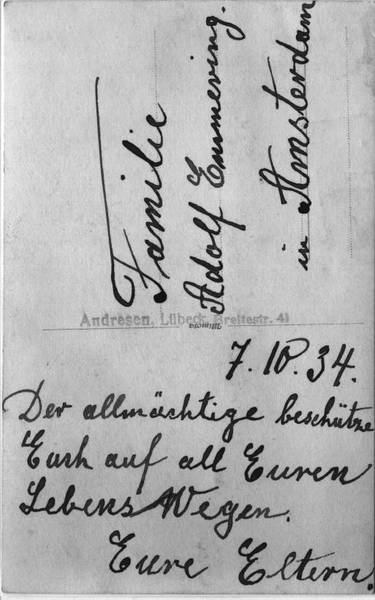 Familie
Adolf Emmering.
in Amsterdam
Andresen, Lübeck, Breitestr. 41
Mimosa
7.10.34.
Der allmächtige beschütze
Euch auf all Euren
Lebens Wegen.
Eure Eltern.